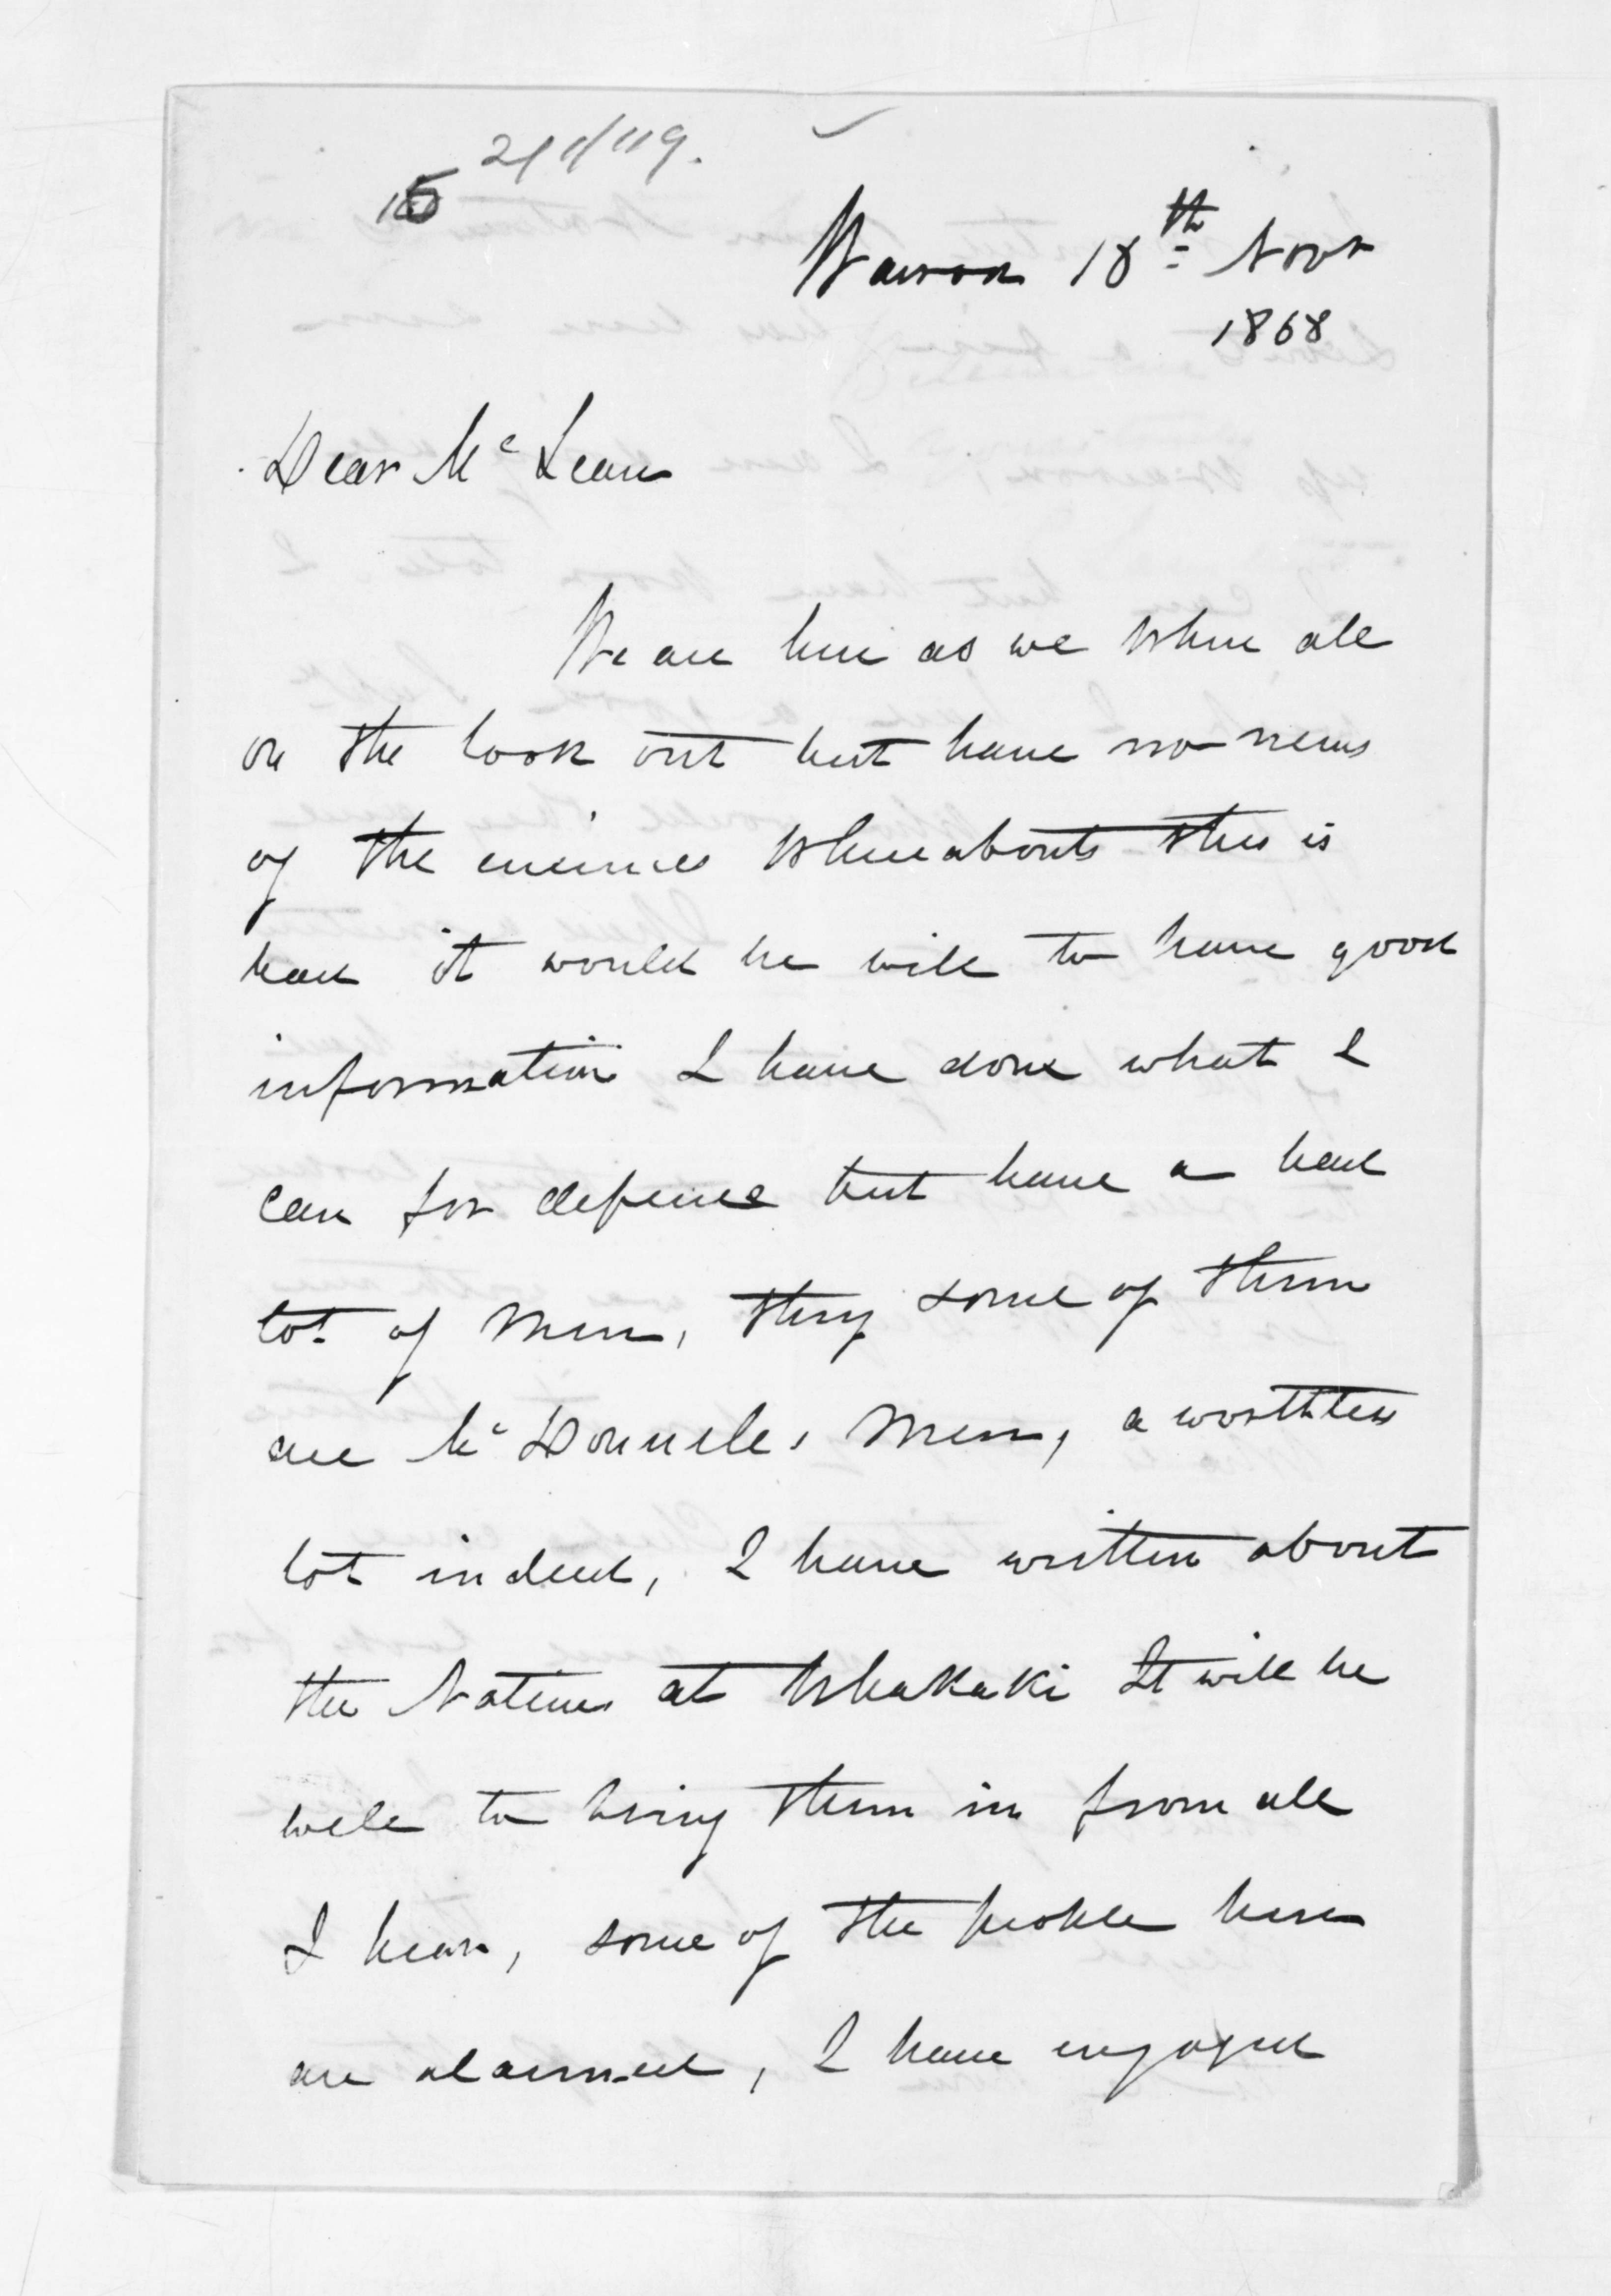 15
Wairoa 18th Novr
1868
Dear McLean
We are here as we where all
on the look out but have no news
of the enemies whereabouts this is
bad it would be well to have good
information I have done what I
can for defence but have a bad
lot of men, they some of them
are McDonnells men, a worthless
lot indeed, I have written about
the Natives at Whakaki It will be
well to bring them in from all
I hear, some of the people here
are alarmed, I have engaged